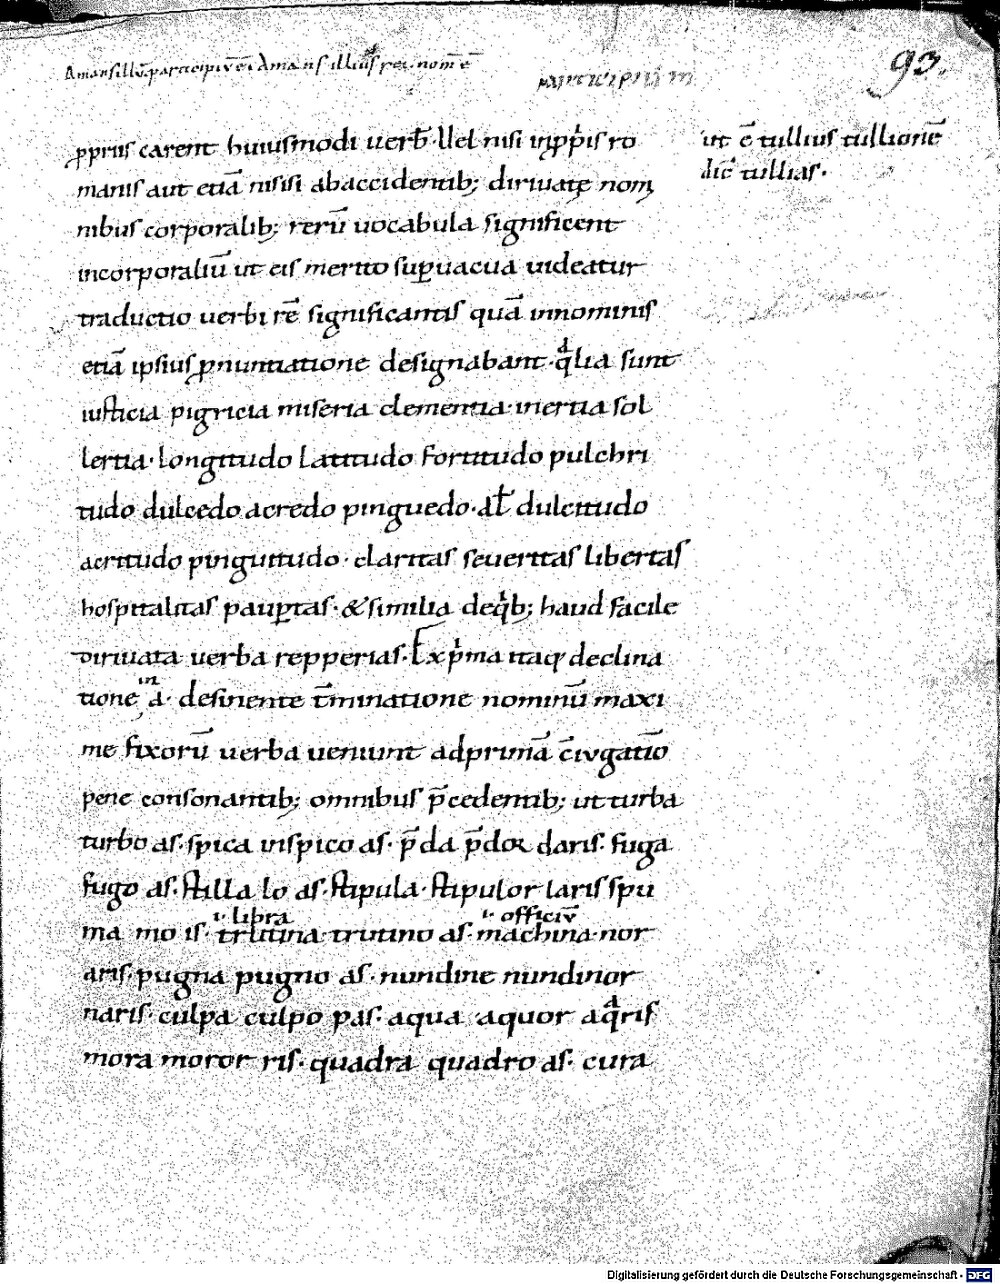 Amans illū participiū ē Amans illius rei nom̄ ē
participium
93.
ꝓpriis carent huiusmodi uerb̄ · Uel nisi inꝓpriis ro
manis aut etiā nisi si abaccidentib; diriuatę nom
nibus corporalib; rerū uocabula significent
incorporaliū ut eis merito suꝑuacua uideatur
traductio uerbi rē significantis quā innominis
etiā ipsius ꝓnuntiatione designabant · qualia sunt
iusticia pigricia miseria clementia · inertia sol
lertia · longitudo latitudo fortitudo pulchri
tudo dulcedo acredo pinguedo · al̄ dulcitudo
acritudo pinguitudo · claritas seueritas libertas
hospitalitas pauꝑtas · & similia de quib; haud facile
diriuata uerba repperias · Ex prima itaq; declina
tione in a · desinente t̄minatione nominū maxi
me fixorū uerba ueniunt adprimā c̄iugatiō
pene consonantib; omnibus p̄cedentib; ut turba
turbo as · spica inspico as · p̄da p̄dor daris · fuga
fugo as · stilla lo as · stipula · stipulor laris spu
i · libra i · officiū
ma mo is · trutina · trutino as · machina · nor
aris · pugna pugno as · nundine nundinor
naris · culpa culpo pas · aqua aquor aquaris
mora moror ris · quadra quadro as · cura
ut ē tullius tullionē
dic̄ tullias ·
Digitalisierung gefördert durch die Deutsche Forschungsgemeinschaft - DFG